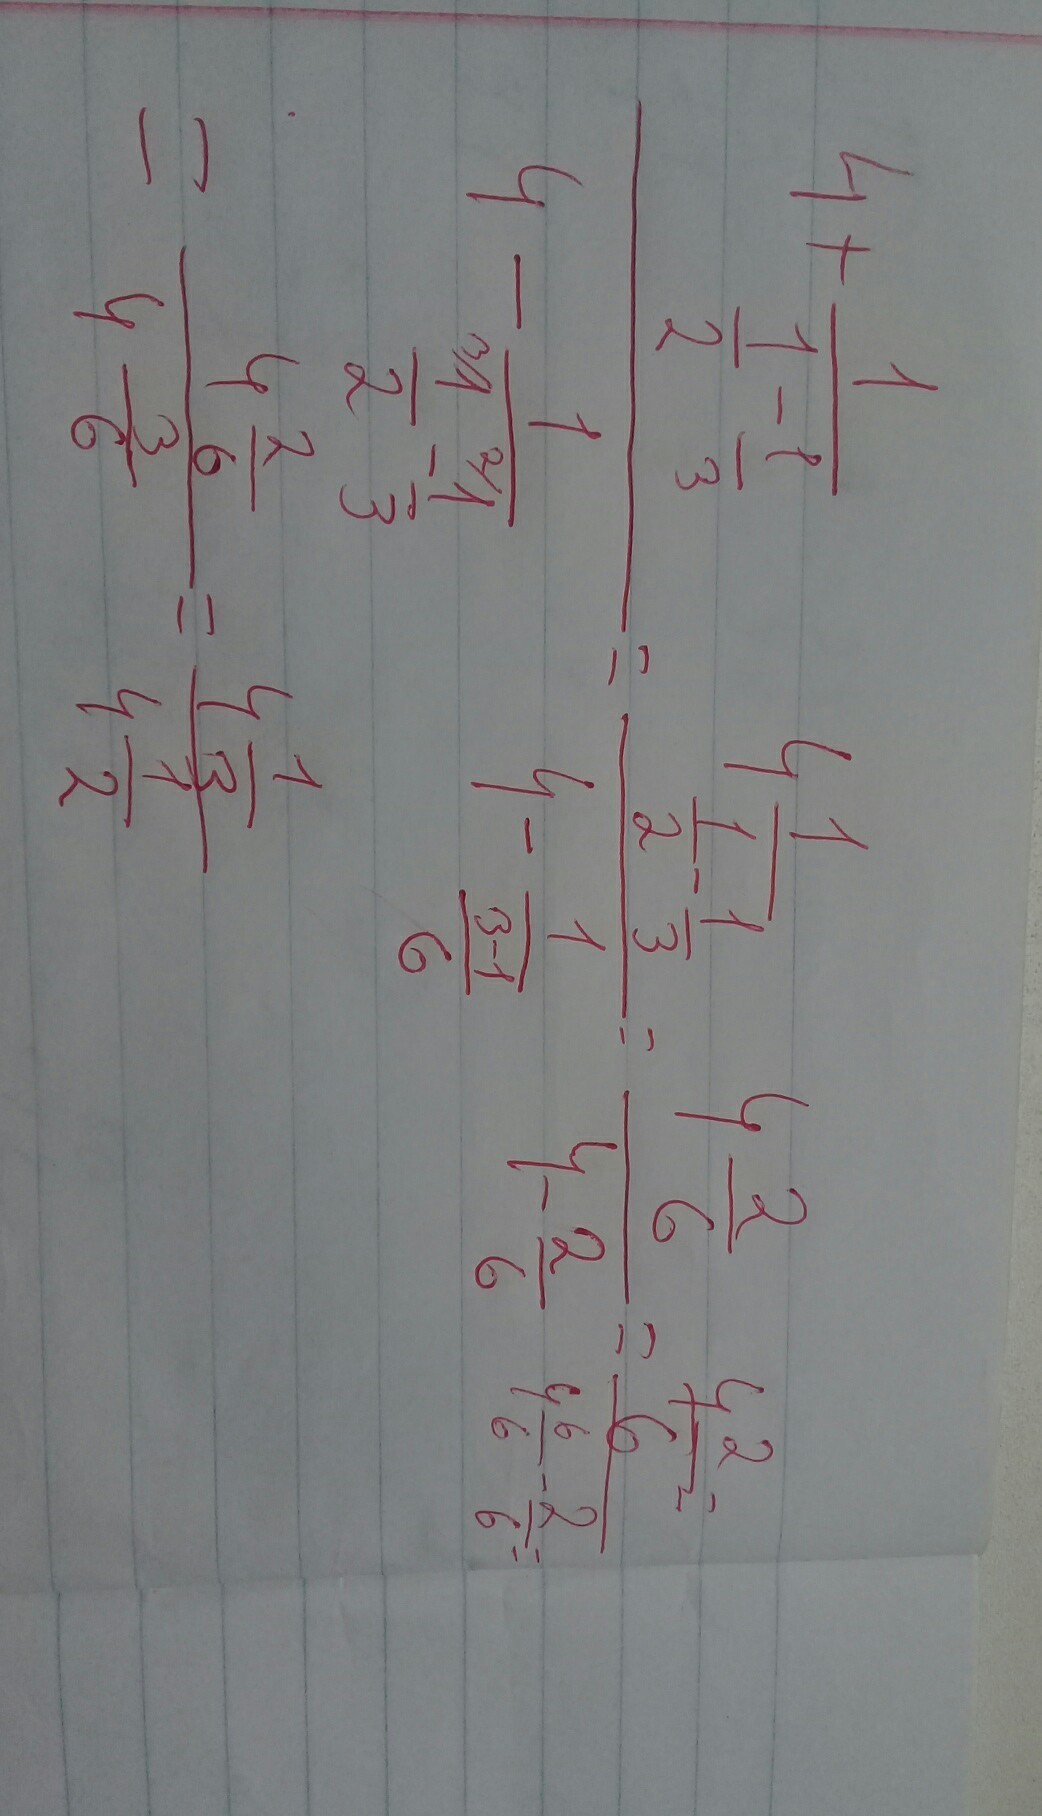 4 + 1/(1/2 - 1/3) / 4 - 1/(3/1/2 - 2/1/3) = 4 1/(1/2 - 1/3) / 4 - 1/((3-1)/6) = 4 2/6 / 4 - 2/6 = 4 2/6 / 4 6/6 - 2/6 =
= 4 2/6 / 4 3/6 = 4 1/3 / 4 1/2